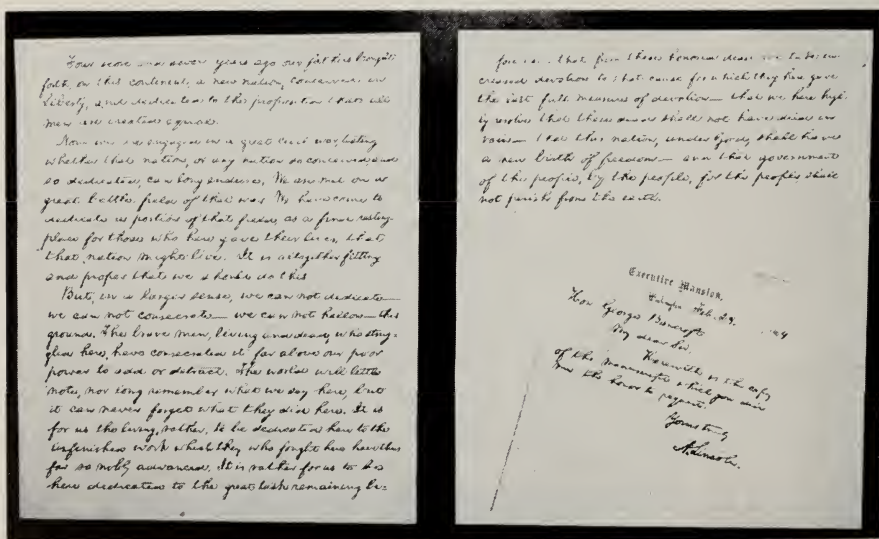 Four score and seven years ago our fathers brought
forth, on this continent, a new nation, conceived in
Liberty, and dedicated to the proposition that all
men are created equal.
Now we are engaged in a great civil war, testing
whether that nation, or any nation so conceived and
so dedicated, can long endure. We are met on a
great battle-field of that war. We have come to
dedicate a portion of that field, as a final resting-
place for those who here gave their lives, that
that nation might live. It is altogether fitting
and proper that we should do this.
But, in a larger sense, we can not dedicate—
we can not consecrate— we can not hallow— this
ground. The brave men, living and dead, who strug-
gled here, have consecrated it far above our poor
power to add or detract. The world will little
note, nor long remember what we say here, but
it can never forget what they did here. It is
for us the living, rather, to be dedicated here to the
unfinished work which they who fought here have thus
far so nobly advanced. It is rather for us to be
here dedicated to the great task remaining be-
fore us— that from these honored dead we take in-
creased devotion to that cause for which they here gave
the last full measure of devotion— that we here high-
ly resolve that these dead shall not have died in
vain— that this nation, under God, shall have
a new birth of freedom— and that government
of the people, by the people, for the people, shall
not perish from the earth.
Executive Mansion,
Feb. 29. 64
Hon George Bancroft
My dear Sir.
Herewith is the copy
of the manuscript which you did
me the honor to request.
Yours truly
A. Lincoln.